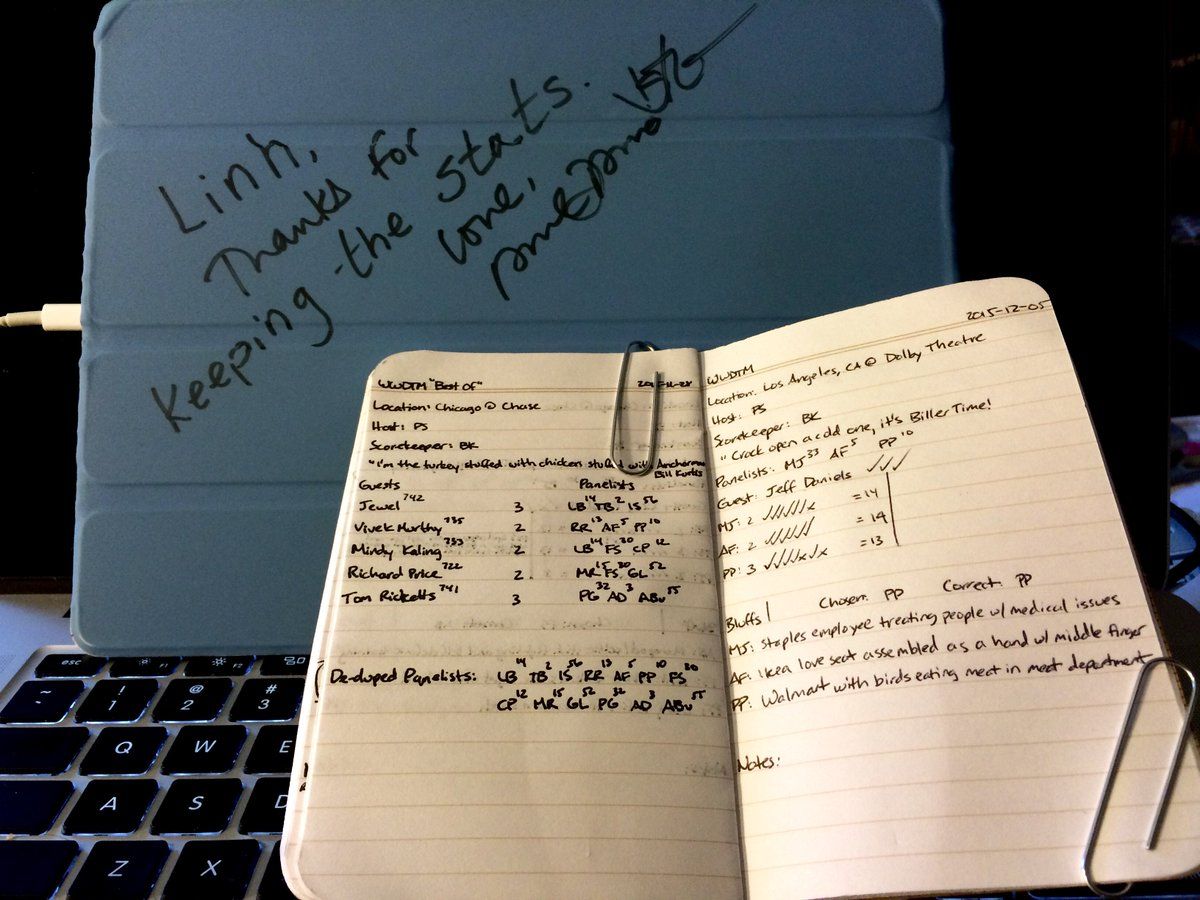 Linh,
Thanks for
keeping the stats.
Love,
WWDTM "Best Of"
Location: Chicago @ Chase
Host: PS
Scorekeeper: BK
"I'm the turkey stuffed with chicken stuffed with Anchorman
Bill Kurtis
Guests Panelists
Jewel 742 3 LB14 TB2 IS56
Vivek Murthy 735 2 RR13 AF5 PP10
Mindy Kaling 733 2 LB14 FS20 CP12
Richard Price 722 2 MR15 FS20 GL52
Tom Ricketts 741 3 PG32 AD3 ABu55
De-duped Panelists: LB14 TB2 IS56 RR13 AF5 PP10 FS20
CP12 MR15 GL52 PG32 AD3 ABu55
2015-12-05
WWDTM
Location: Los Angeles, CA @ Dolby Theatre
Host: PS
Scorekeeper: BK
"Crack open a cold one, it's Biller Time!
Panelists: MJ33 AF5 PP10
Guest: Jeff Daniels ✓✓✓
MJ: 2 ✓✓✓✓✓✓x =14
AF: 2 ✓✓✓✓✓✓ =14
PP: 3 ✓✓✓✓x✓x =13
Bluffs | Chosen: PP Correct: PP
MJ: Staples employee treating people w/ medical issues
AF: Ikea love seat assembled as a hand w/ middle finger
PP: Walmart with birds eating meat in meat department
Notes:
esc F1 F2
~ ! @ #
\` 1 2 3
Q W E
A S D
Z X